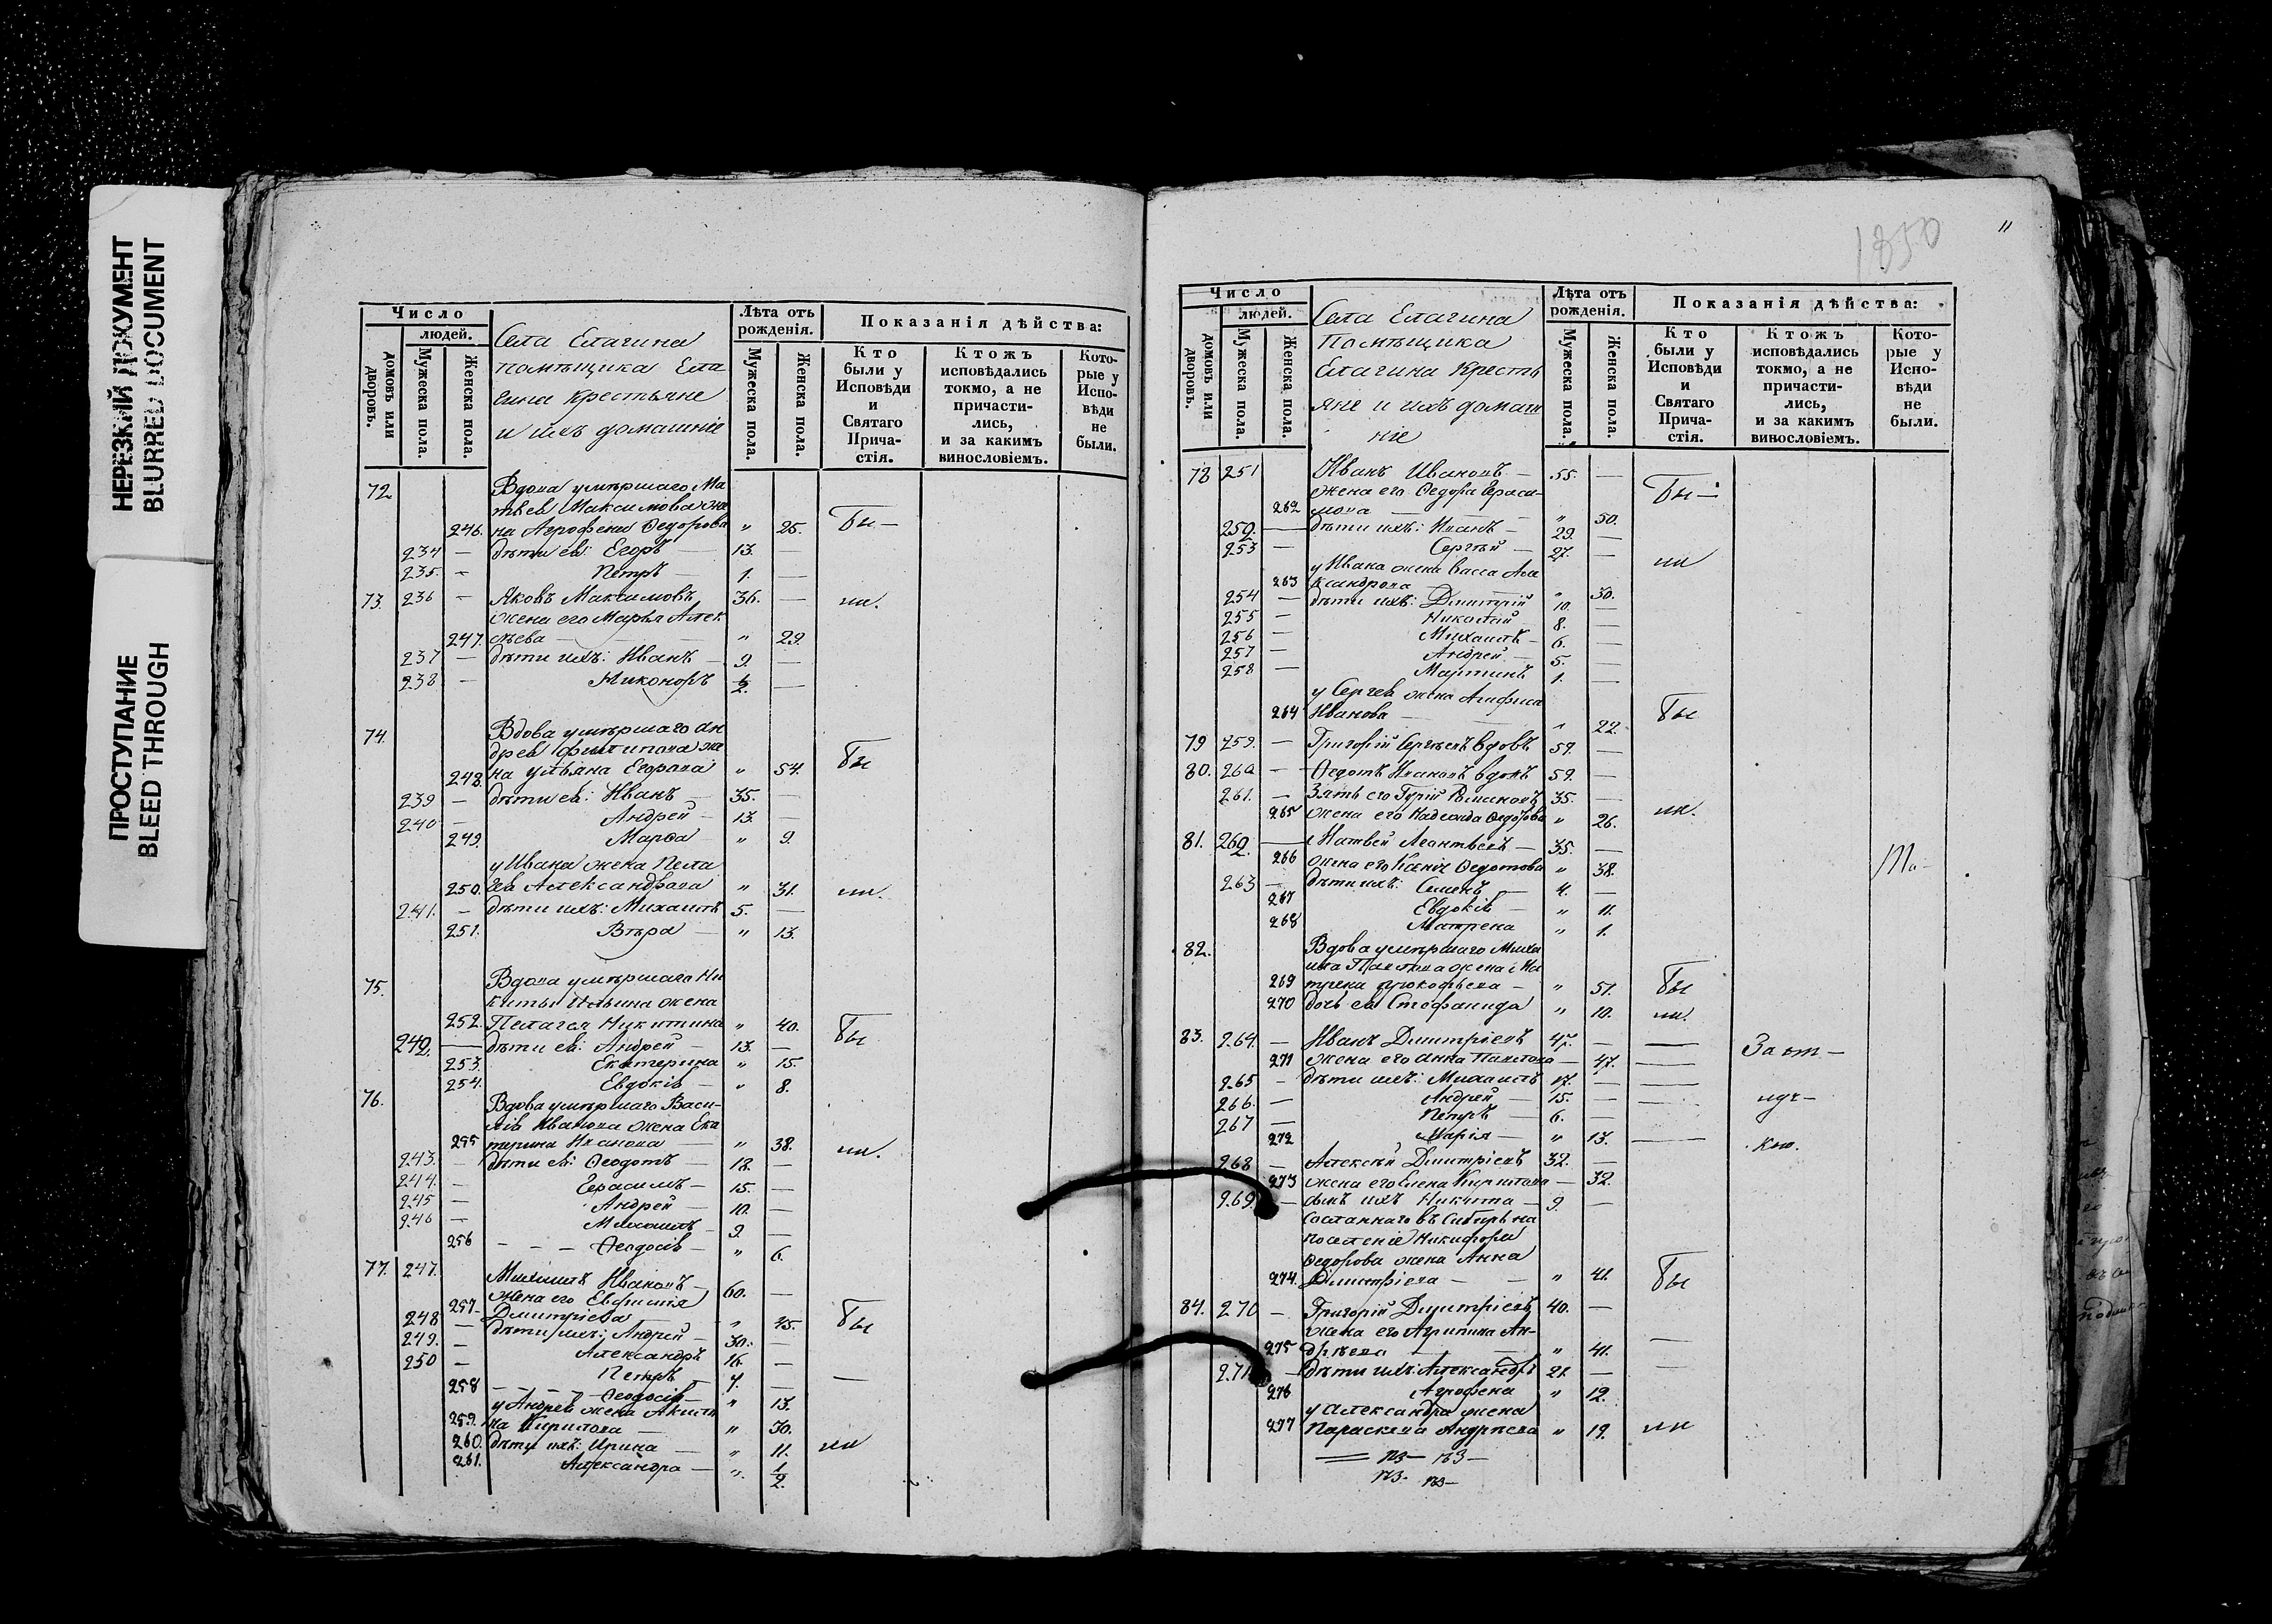 НЕРЕЗКИЙ ДОКУМЕНТ
BLURRED DOCUMENT
ПРОСТУПАНИЕ
BLEED THROUGH
Число
людей.
домовъ или дворовъ.
Мужеска пола.
Женска пола.
Села Елагина
помѣщика Ела
гина крестьяне
и ихъ домашніе
Лѣта отъ рожденія.
Мужеска пола.
Женска пола.
Показанія дѣйства:
Кто были у Исповѣди и Святаго Прича- стія.
Ктожъ исповѣдались токмо, а не причасти- лись, и за какимъ винословіемъ.
Кото- рые у Испо- вѣди не были.
72 Вдова умершаго Ма
твея Максимова же
246. на Агрофена Ѳедорова " 25. Бы —
234 — дѣти ея: Егоръ — 13. —
235. — Петръ — 1. —
73. 236 — Яковъ Максимовъ 36. — ли.
жена его Марья Алек
247. сѣева — " 29.
237 — дѣти ихъ: Иванъ — 9. —
238 — Никоноръ 1/2. —
74. Вдова умершаго Ан
дрея Филипова же
248. на Ульяна Егорова " 54. Бы
239 — дѣти ея: Иванъ — 35. —
240 — Андрей — 13. —
249. Марѳа — " 9.
у Ивана жена Пела
250. гея Александрова " 31. ли.
241. — дѣти ихъ: Михаилъ 5. —
251. Вѣра — " 13.
75. Вдова умершаго Ни
киты Ильина жена
252. Пелагея Никитина " 40. Бы
242. — дѣти ея: Андрей — 13. —
253. Екатерина " 15.
254. Евдокія — " 8.
76. Вдова умершаго Васи-
лія Иванова жена Ека
255 терина Иванова — " 38. ли.
243. — дѣти ея: Ѳеодотъ — 18. —
244. — Герасимъ — 15. —
245 — Андрей — 10. —
246 — Михаилъ 9. —
256 — — — Ѳеодосія — " 6.
77. 247. Михаилъ Ивановъ — 60. —
жена его Евфимія
257. Дмитріева — " 45. Бы
248 — дѣти ихъ: Андрей — 30. —
249. — Александръ 16. —
250 — Петръ — 7. — —
258 — — — Ѳеодосія — " 13.
у Андрея жена Акили
259. на Кирилова — " 30.
260. дѣти ихъ: Ирина — " 11. ли
261. Александра — " 1/2.
1850
11
Число
людей.
домовъ или дворовъ.
Мужеска пола.
Женска пола.
Села Елагина
Помѣщика
Елагина Кресть
яне и ихъ домаш
ніе
Лѣта отъ рожденія.
Мужеска пола.
Женска пола.
Показанія дѣйства:
Кто были у Исповѣди и Святаго Прича- стія.
Ктожъ исповѣдались токмо, а не причасти- лись, и за какимъ винословіемъ.
Кото- рые у Испо- вѣди не были.
78 251 Иванъ Ивановъ — 55. — Бы —
жена его Ѳедора Гераси-
262 мова — " 50.
252. — дѣти ихъ: Иванъ — 29. —
253 — Сергѣй — 27. — ли
у Ивана жена Васса Але
263 ксандрова — " 30.
254 — дѣти ихъ: Дмитрій 10. —
255 — Николай — 8. —
256 — Михаилъ — 6. —
257 — Андрей — 5. —
258 — Мартинъ 1. —
у Сергея жена Анфиса
264 Иванова — " 22. Бы
79 259. — Григорій Сергѣевъ вдовъ 59. —
80. 260 — Ѳедотъ Ивановъ вдовъ 59. —
261. — Зять его Гурій Романовъ 35. —
265 жена его Надежда Ѳедотова " 26. ли.
81. 262. — Матвей Леонтьевъ — 35. —
266 жена его Ксенія Ѳедотова " 38.
263 — дѣти ихъ: Семенъ — 4. —
267 Евдокія — " 11.
268 Матрена " 1.
82. Вдова умершаго Миха
ила Павлова жена Ма
269 трена Прокофьева — " 51. Бы
270 дочь ея Стефанида " 10. ли.
83. 264. — Иванъ Димитріевъ 47. — — За от —
271 жена его Анна Павлова — 47. —
265 — дѣти ихъ: Михаилъ 17. — —
266. — Андрей — 15. — —
267 — Петръ — 6. —
272 Марія — " 13. —
268 — Алексѣй Димитріевъ 32. —
273 жена его Елена Кирилова — 32.
269 — сынъ ихъ Никита — 9. —
Сосланнаго въ Сибирь на
поселеніе Никифора
Ѳедорова жена Анна
274. Димитріева — — " 41. Бы
84. 270 — Григорій Димитріевъ 40. —
жена его Агрипина Ан-
275 дрѣева — " 41. —
271. — дѣти ихъ: Александръ 21. — —
276 Агрофена " 12.
у Александра жена
277 Параскева Андрѣева " 19. ли